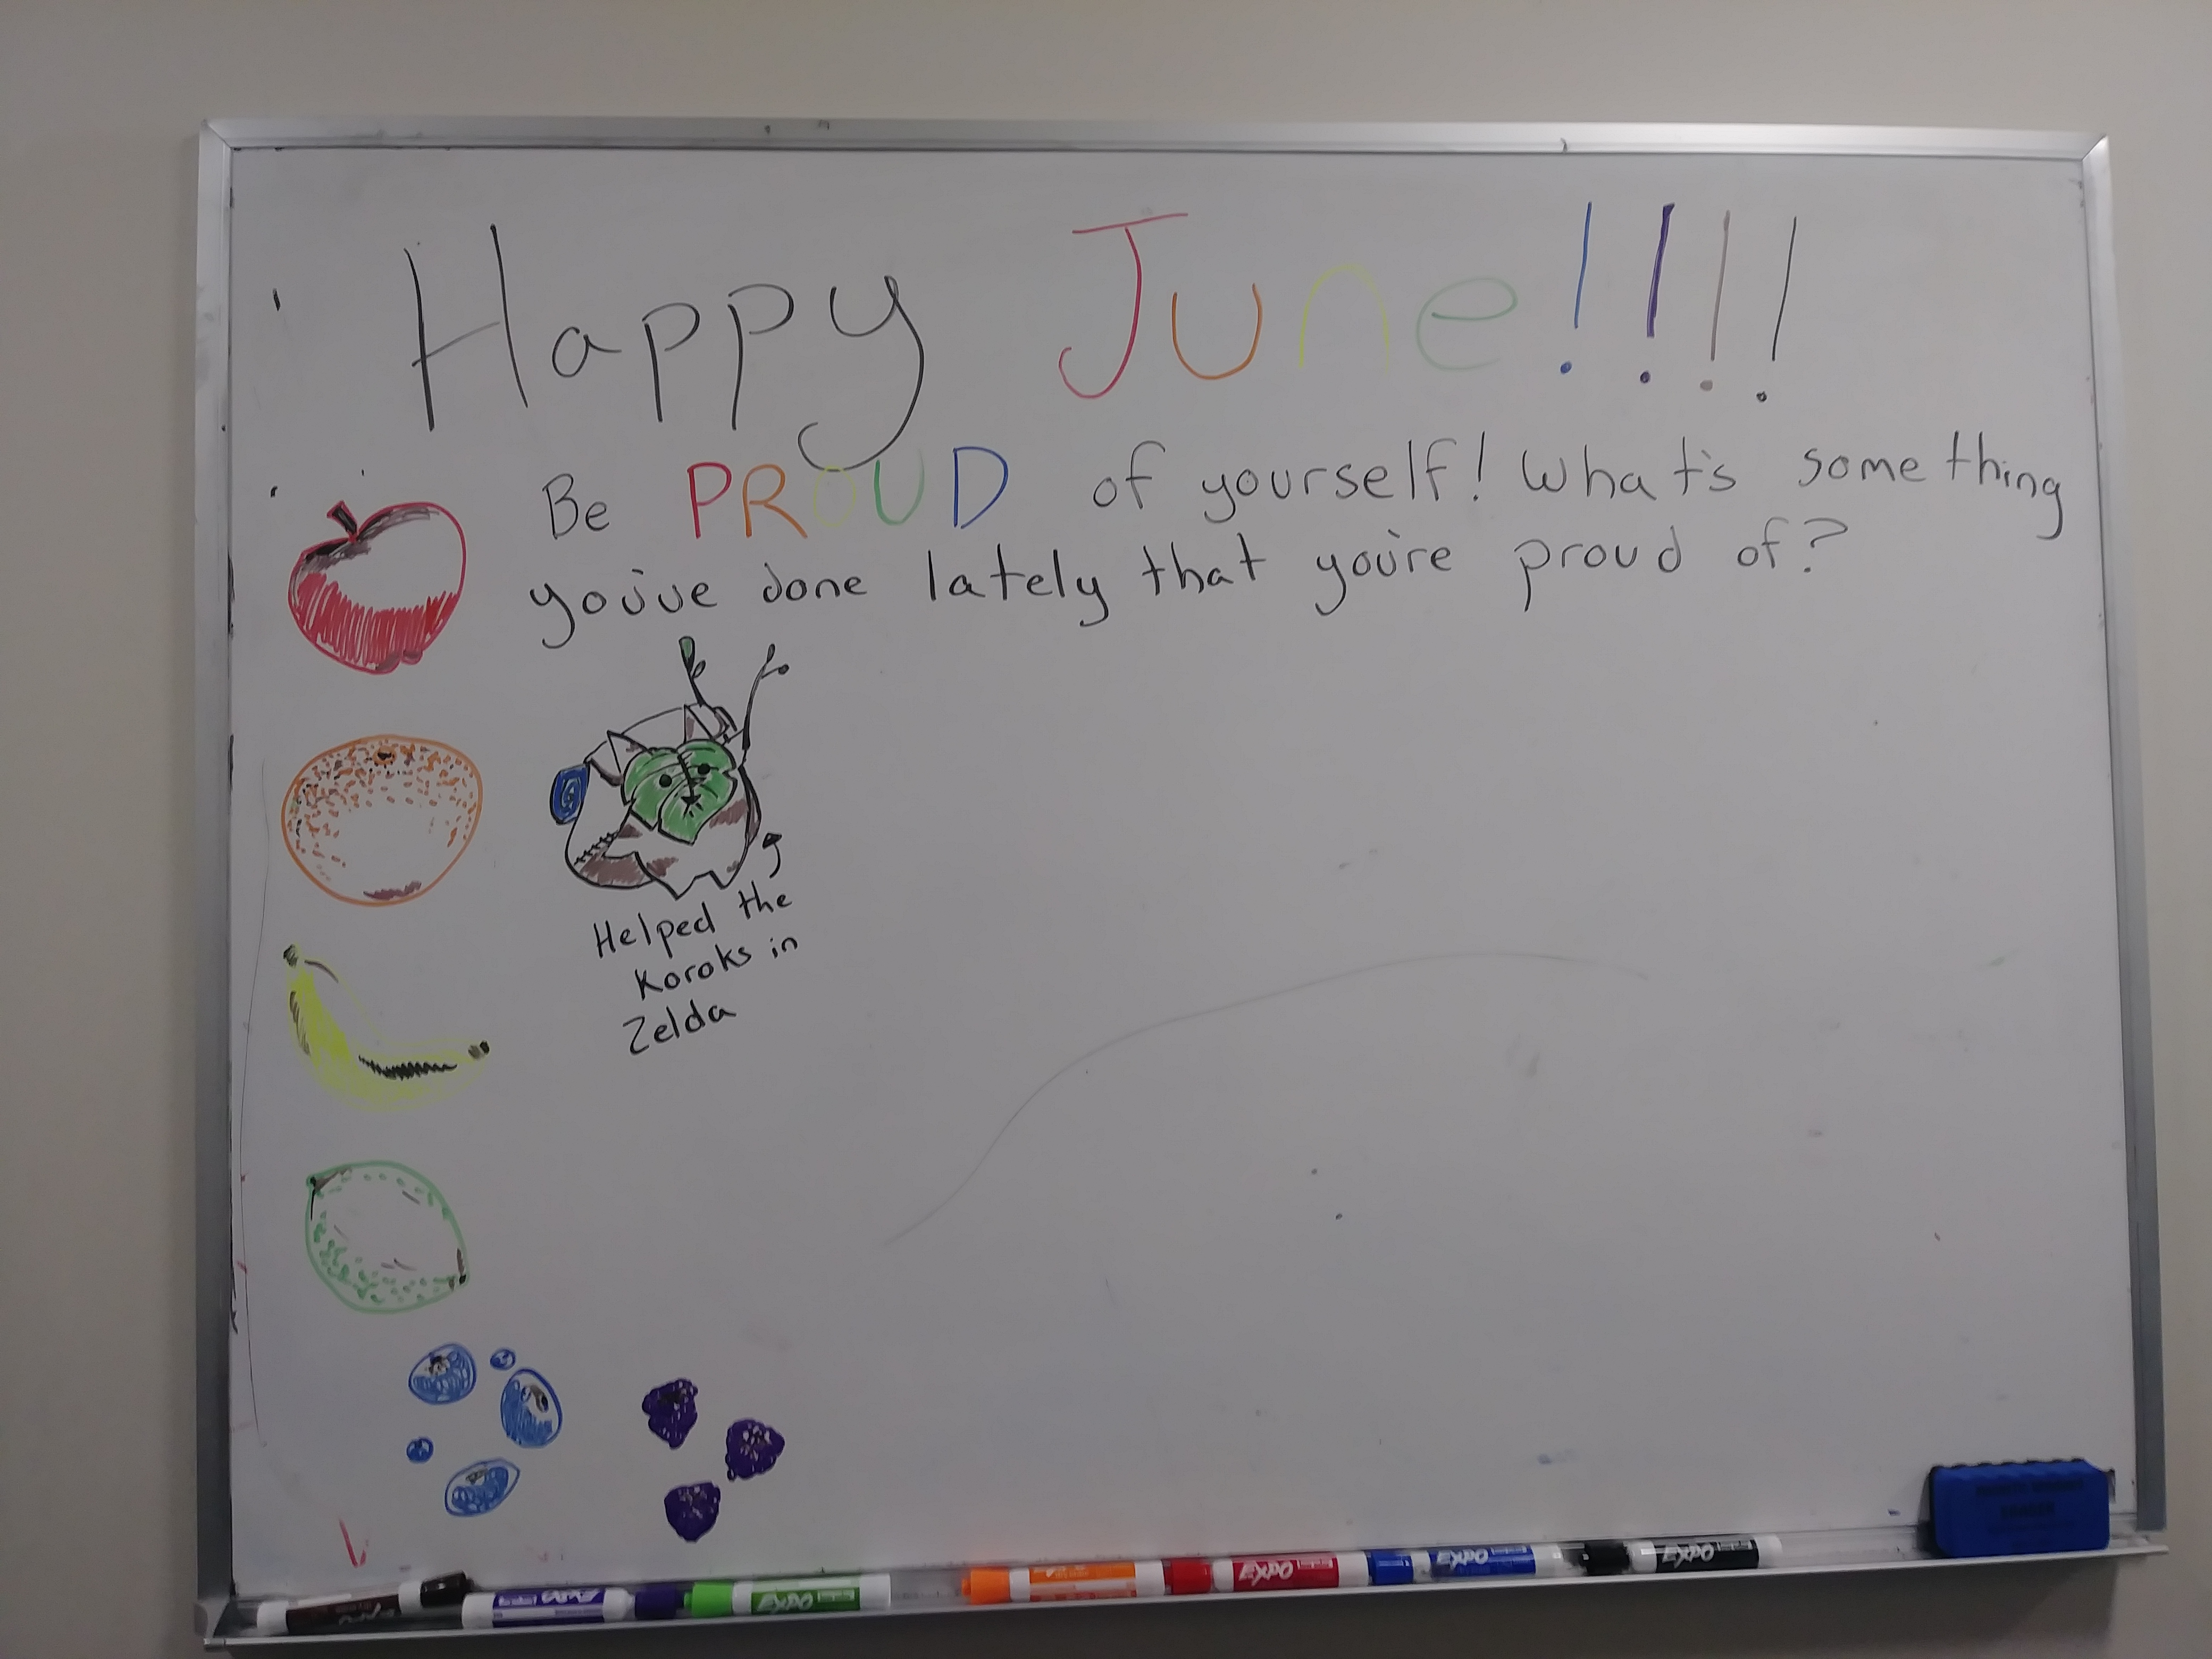 Happy June!!!!
Be PROUD of yourself! What's something
you've done lately that you're proud of?
Helped the
Koroks in
Zelda
EXPO
EXPO
EXPO
EXPO
EXPO
EXPO